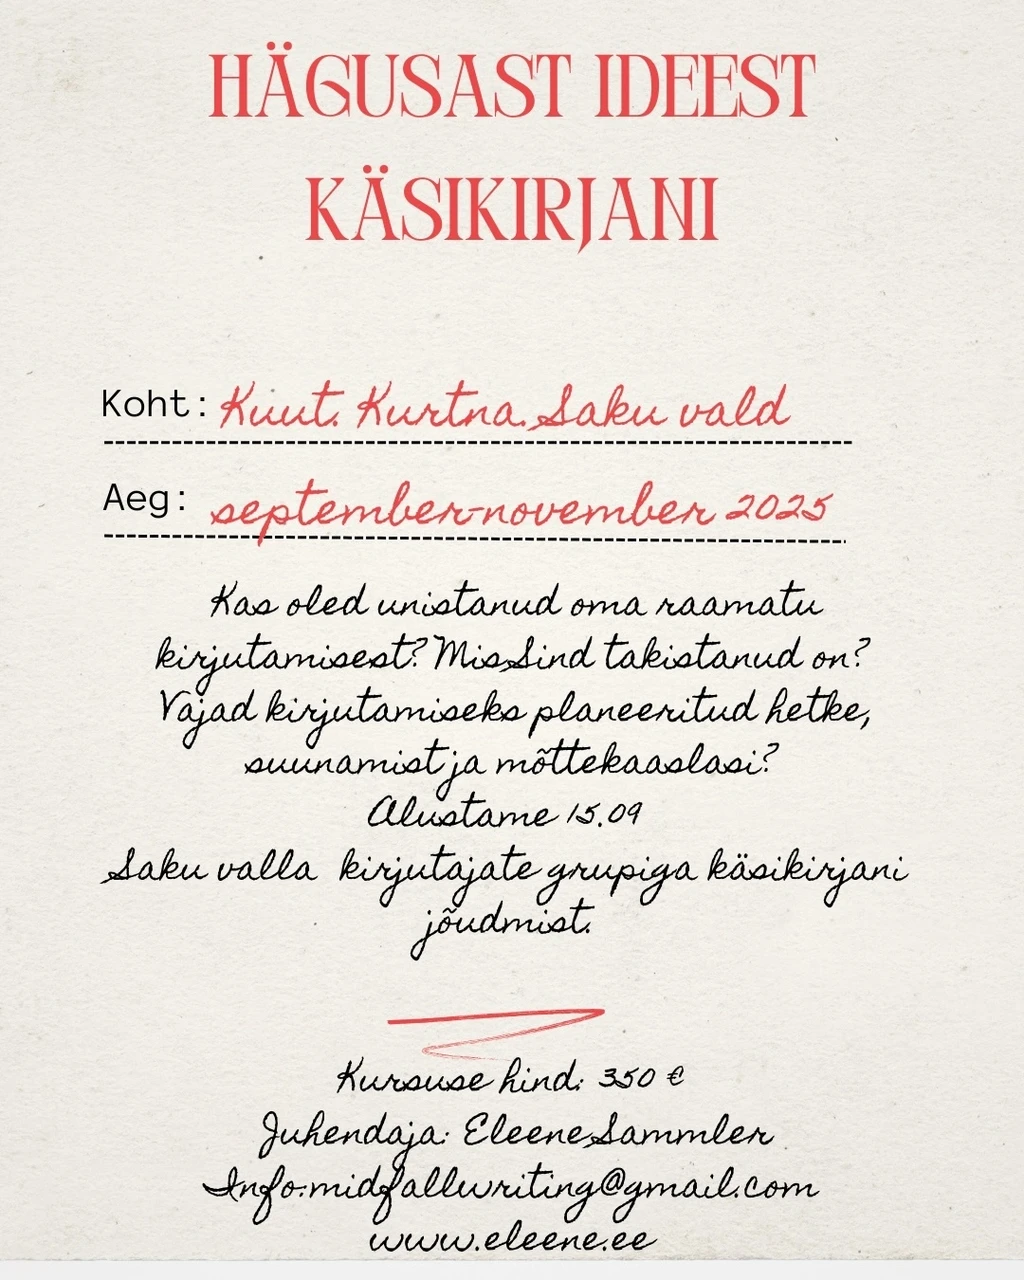 HÄGUSAST IDEEST
KÄSIKIRJANI
Koht: Kuut. Kurtna. Saku vald
Aeg: september-november 2025
Kas oled unistanud oma raamatu
kirjutamisest? Mis Sind takistanud on?
Vajad kirjutamiseks planeeritud hetke,
suunamist ja mõttekaaslasi?
Alustame 15.09
Saku valla kirjutajate grupiga käsikirjani
jõudmist.
Kursuse hind: 350 €
Juhendaja: Eleene Sammler
Info:midfallwriting@gmail.com
www.eleene.ee